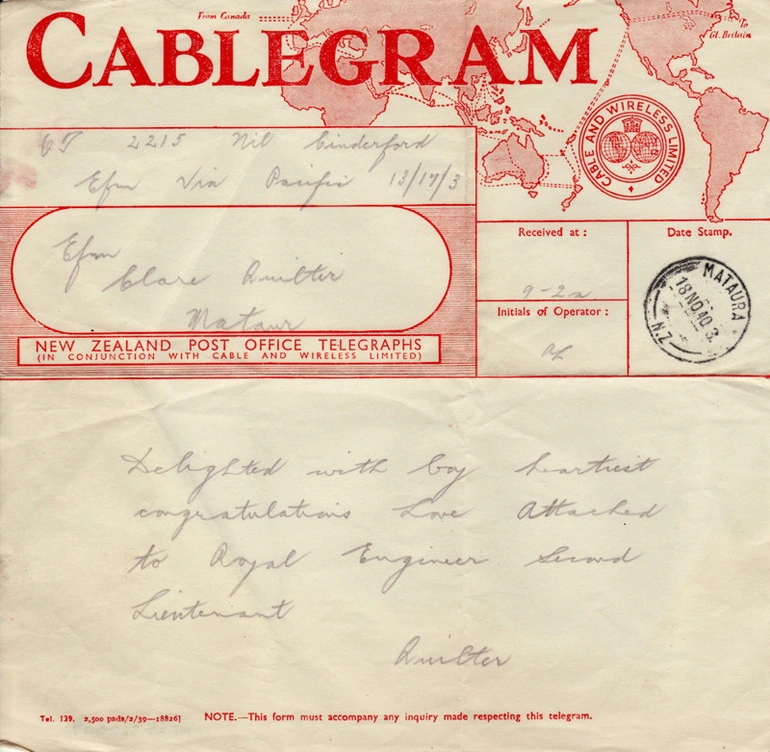 From Canada
To
Gt. Britain
CABLEGRAM
CABLE AND WIRELESS LIMITED
CT 2215 Nil Cinderford
Efm Via Pacific 13/17/3
Efm
Clare Quilter
Mataur
NEW ZEALAND POST OFFICE TELEGRAPHS
(IN CONJUNCTION WITH CABLE AND WIRELESS LIMITED)
Received at :
9-2a
Initials of Operator :
Date Stamp.
MATAURA
18 NO 40
N.Z
Delighted with boy heartiest
congratulations Love Attached
to Royal Engineer Second
Lientenant
Quilter
Tel. 139. 2,500 pads/2/39—18826]
NOTE.—This form must accompany any inquiry made respecting this telegram.